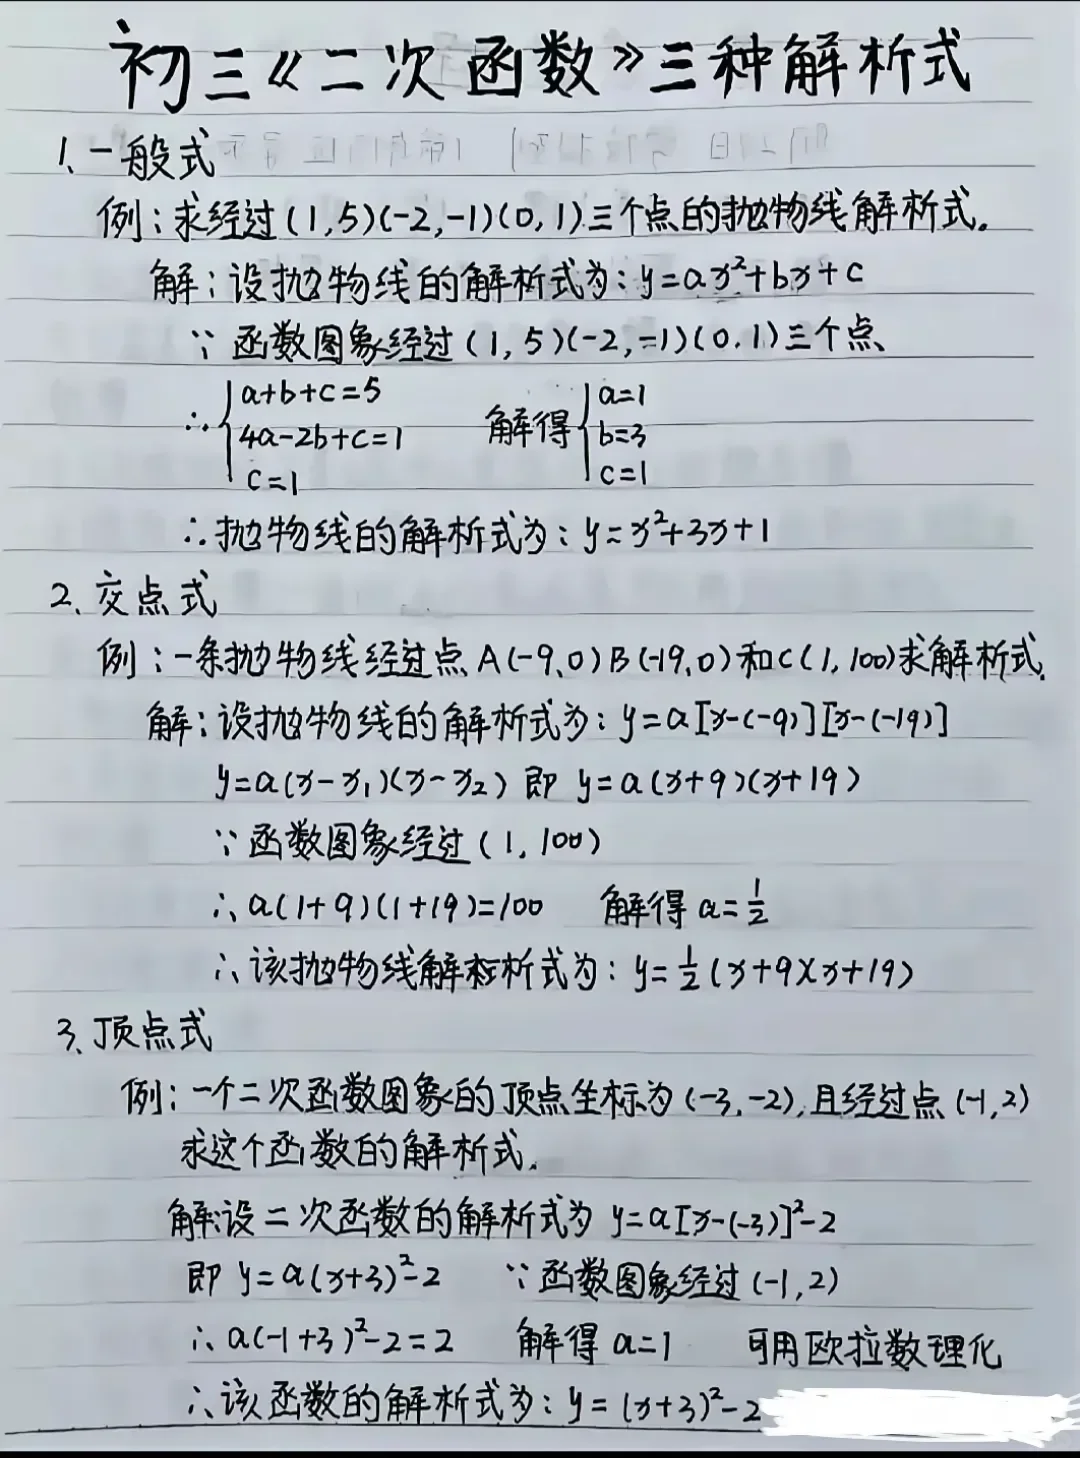 初三《二次函数》三种解析式
1、一般式
例：求经过(1,5)(-2,-1)(0,1)三个点的抛物线解析式。
解：设抛物线的解析式为：y=ax²+bx+c
∵函数图象经过(1,5)(-2,-1)(0.1)三个点、
∴{a+b+c=5 解得{a=1
4a-2b+c=1 b=3
c=1 c=1
∴抛物线的解析式为：y=x²+3x+1
2、交点式
例：一条抛物线经过点A(-9,0)B(-19,0)和C(1,100)求解析式.
解：设抛物线的解析式为：y=a[x-(-9)][x-(-19)]
y=a(x-x₁)(x-x₂)即 y=a(x+9)(x+19)
∵函数图象经过(1,100)
∴a(1+9)(1+19)=100 解得a=1/2
∴该抛物线解析式为：y=1/2(x+9)(x+19)
3、顶点式
例：一个二次函数图象的顶点坐标为(-3,-2),且经过点(-1,2)
求这个函数的解析式.
解:设二次函数的解析式为 y=a[x-(-3)]²-2
即 y=a(x+3)²-2 ∵函数图象经过(-1,2)
∴a(-1+3)²-2=2 解得a=1 可用欧拉数理化
∴该函数的解析式为：y=(x+3)²-2